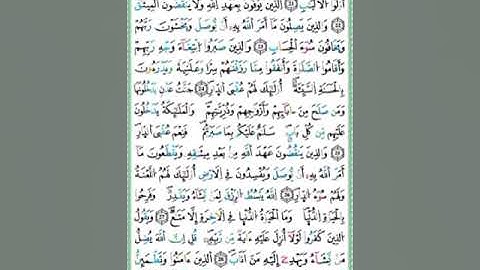 أُوْلُوا۟ الْأَلْبَٰبِ الَّذِينَ يُوفُونَ بِعَهْدِ اللَّهِ وَلَا يَنقُضُونَ الْمِيثَٰقَ
وَالَّذِينَ يَصِلُونَ مَا أَمَرَ اللَّهُ بِهِ أَن يُوصَلَ وَيَخْشَوْنَ رَبَّهُمْ
وَيَخَافُونَ سُوءَ الْحِسَابِ وَالَّذِينَ صَبَرُوا ابْتِغَاءَ وَجْهِ رَبِّهِمْ
وَأَقَامُوا الصَّلَوٰةَ وَأَنفَقُوا مِمَّا رَزَقْنَٰهُمْ سِرًّا وَعَلَانِيَةً وَيَدْرَءُونَ
بِالْحَسَنَةِ السَّيِّئَةَ أُوْلَٰئِكَ لَهُمْ عُقْبَى الدَّارِ جَنَّٰتُ عَدْنٍ يَدْخُلُونَهَا
وَمَن صَلَحَ مِنْ ءَابَائِهِمْ وَأَزْوَٰجِهِمْ وَذُرِّيَّٰتِهِمْ وَالْمَلَٰئِكَةُ يَدْخُلُونَ
عَلَيْهِم مِّن كُلِّ بَابٍ سَلَٰمٌ عَلَيْكُم بِمَا صَبَرْتُمْ فَنِعْمَ عُقْبَى الدَّارِ
وَالَّذِينَ يَنقُضُونَ عَهْدَ اللَّهِ مِن بَعْدِ مِيثَٰقِهِ وَيَقْطَعُونَ مَا
أَمَرَ اللَّهُ بِهِ أَن يُوصَلَ وَيُفْسِدُونَ فِي الْأَرْضِ أُوْلَٰئِكَ لَهُمُ اللَّعْنَةُ
وَلَهُمْ سُوءُ الدَّارِ اللَّهُ يَبْسُطُ الرِّزْقَ لِمَن يَشَاءُ وَيَقْدِرُ وَفَرِحُوا
بِالْحَيَوٰةِ الدُّنْيَا وَمَا الْحَيَوٰةُ الدُّنْيَا فِي الْأَخِرَةِ إِلَّا مَتَٰعٌ وَيَقُولُ
الَّذِينَ كَفَرُوا لَوْلَا أُنزِلَ عَلَيْهِ ءَايَةٌ مِّن رَّبِّهِ قُلْ إِنَّ اللَّهَ يُضِلُّ
مَن يَشَاءُ وَيَهْدِي إِلَيْهِ مَنْ أَنَابَ الَّذِينَ ءَامَنُوا وَتَطْمَئِنُّ